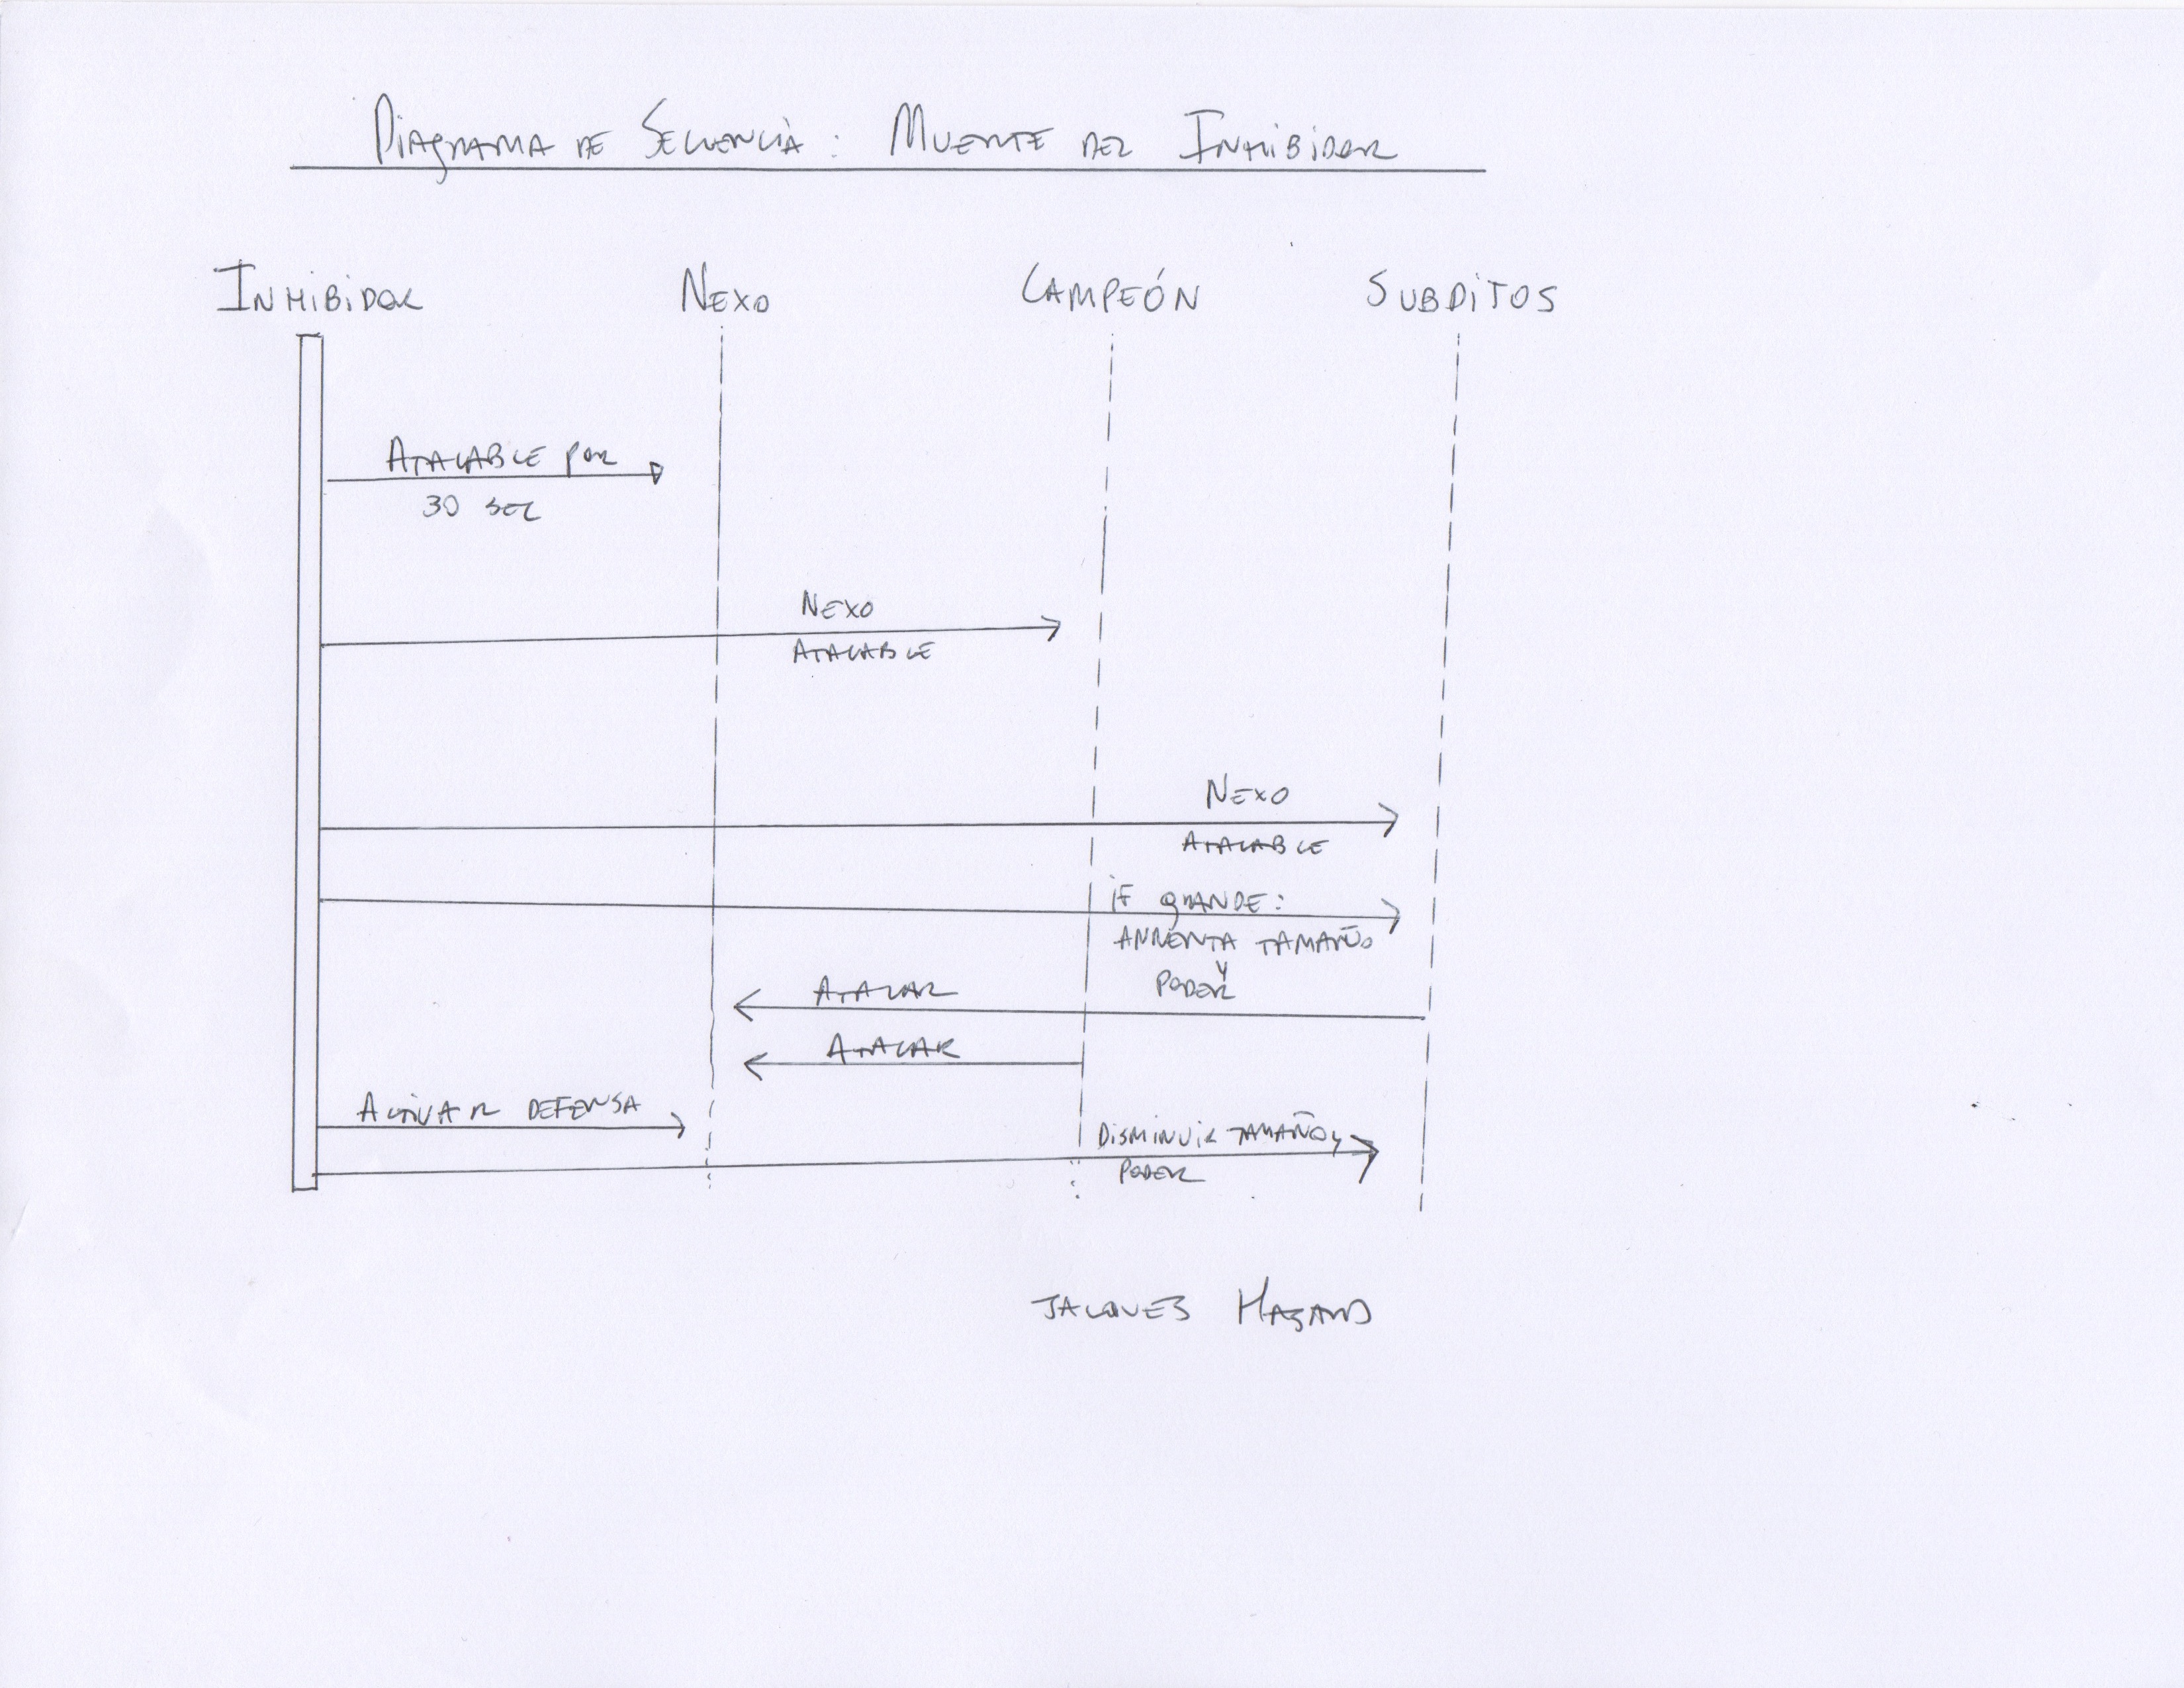 DIAGRAMA DE SECUENCIA: MUERTE DEL INHIBIDOR
INHIBIDOR NEXO CAMPEÓN SUBDITOS
ATACABLE POR
30 SEC
NEXO
ATACABLE
NEXO
ATACABLE
IF GRANDE:
AUMENTA TAMAÑO
Y
PODER
ATACAR
ATACAR
ACTIVAR DEFENSA
DISMINUIR TAMAÑO Y
PODER
JACQUES HAZARD